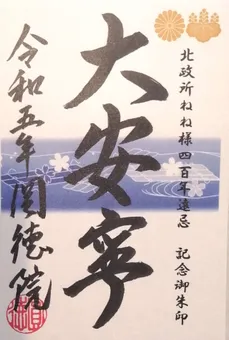 北政所ねね様四百年遠忌 記念御朱印
大安寧
令和五年圓徳院